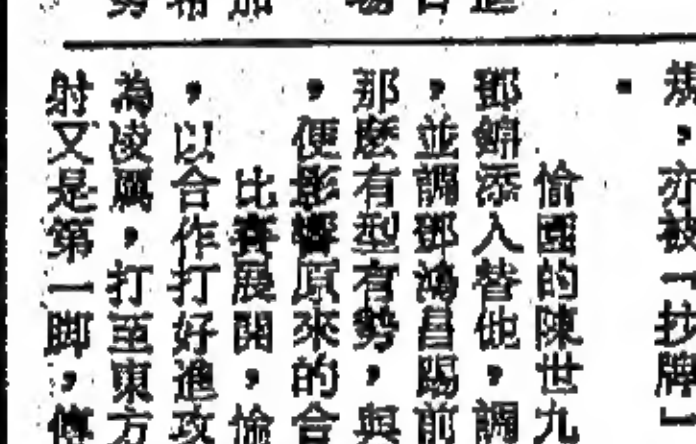 規，亦被「抆牌」
．
愉園的陳世九
鄧錦添入替他，調
，並調鄧鴻昌踢前
那麽有型有勢，與
，便影響原來的合
比賽展開，愉
，以合作打好進攻
為凌厲，打至東方
射又是第一脚，傅